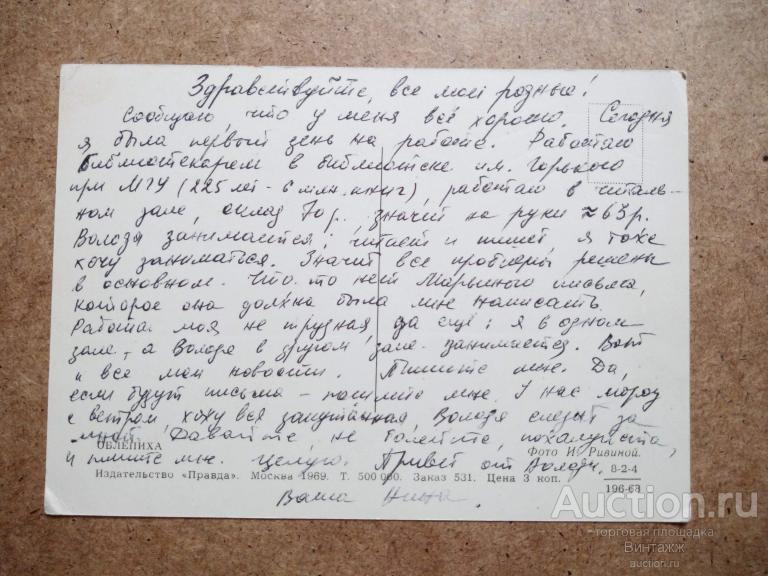 Здравствуйте, все мои родные!
Сообщаю, что у меня всё хорошо. Сегодня
я была первый день на работе. Работаю
библиотекарем в библиотеке им. Горького
при МГУ (225 лет - 6 млн. книг), работаю в читаль-
ном зале, оклад 70 р., значит на руки ≈ 63 р.
Володя занимается; читает и пишет, я тоже
хочу заниматься. Значит все проблемы решены
в основном. Что-то нет Марьиного письма,
которое она должна была мне написать.
Работа моя не трудная, да ещё: я в одном
зале, а Володя в другом зале занимается. Вот
и все мои новости. Пишите мне. Да,
если будут письма - пошлите мне. У нас мороз
с ветром, хожу вся закутанная, Володя следит за
мной. Давайте, не болейте, пожалуйста,
ОБЛЕПИХА
Фото И. Ривиной.
и пишите мне. Целую. Привет от Володи.
8-2-4
196-68
Издательство «Правда». Москва 1969. Т. 500 000. Заказ 531. Цена 3 коп.
Ваша Нина.
Auction.ru
торговая площадка
Винтажж
auction.ru